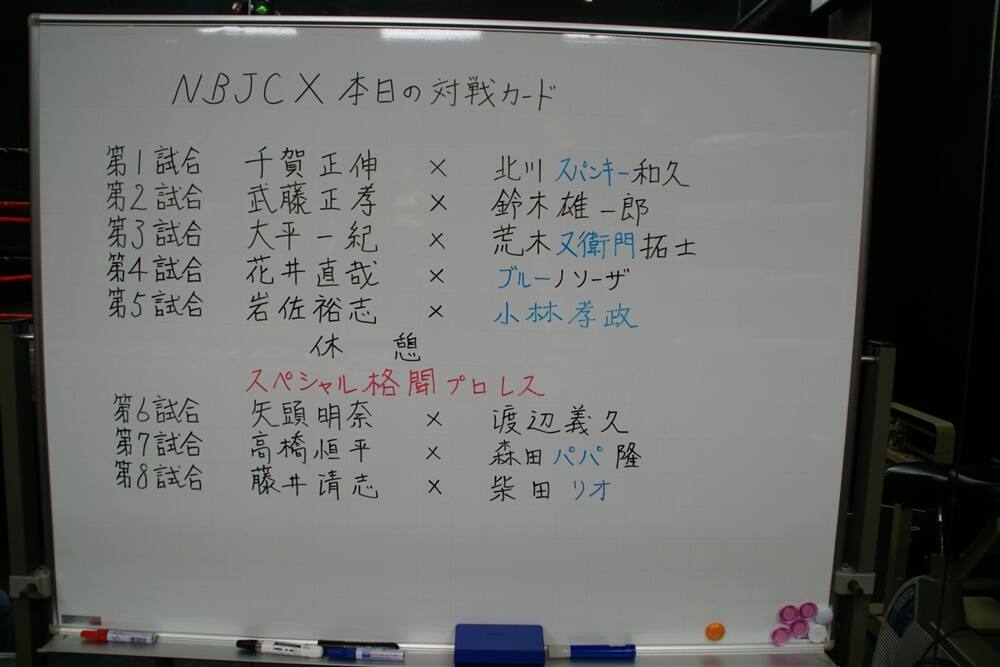 NBJCX 本日の対戦カード
第1試合 千賀正伸 × 北川スパンキー和久
第2試合 武藤正孝 × 鈴木雄一郎
第3試合 大平一紀 × 荒木又衛門拓士
第4試合 花井直哉 × ブルーノソーザ
第5試合 岩佐裕志 × 小林孝政
休 憩
スペシャル格闘プロレス
第6試合 矢頭明奈 × 渡辺義久
第7試合 高橋恒平 × 森田パパ隆
第8試合 藤井清志 × 柴田リオ